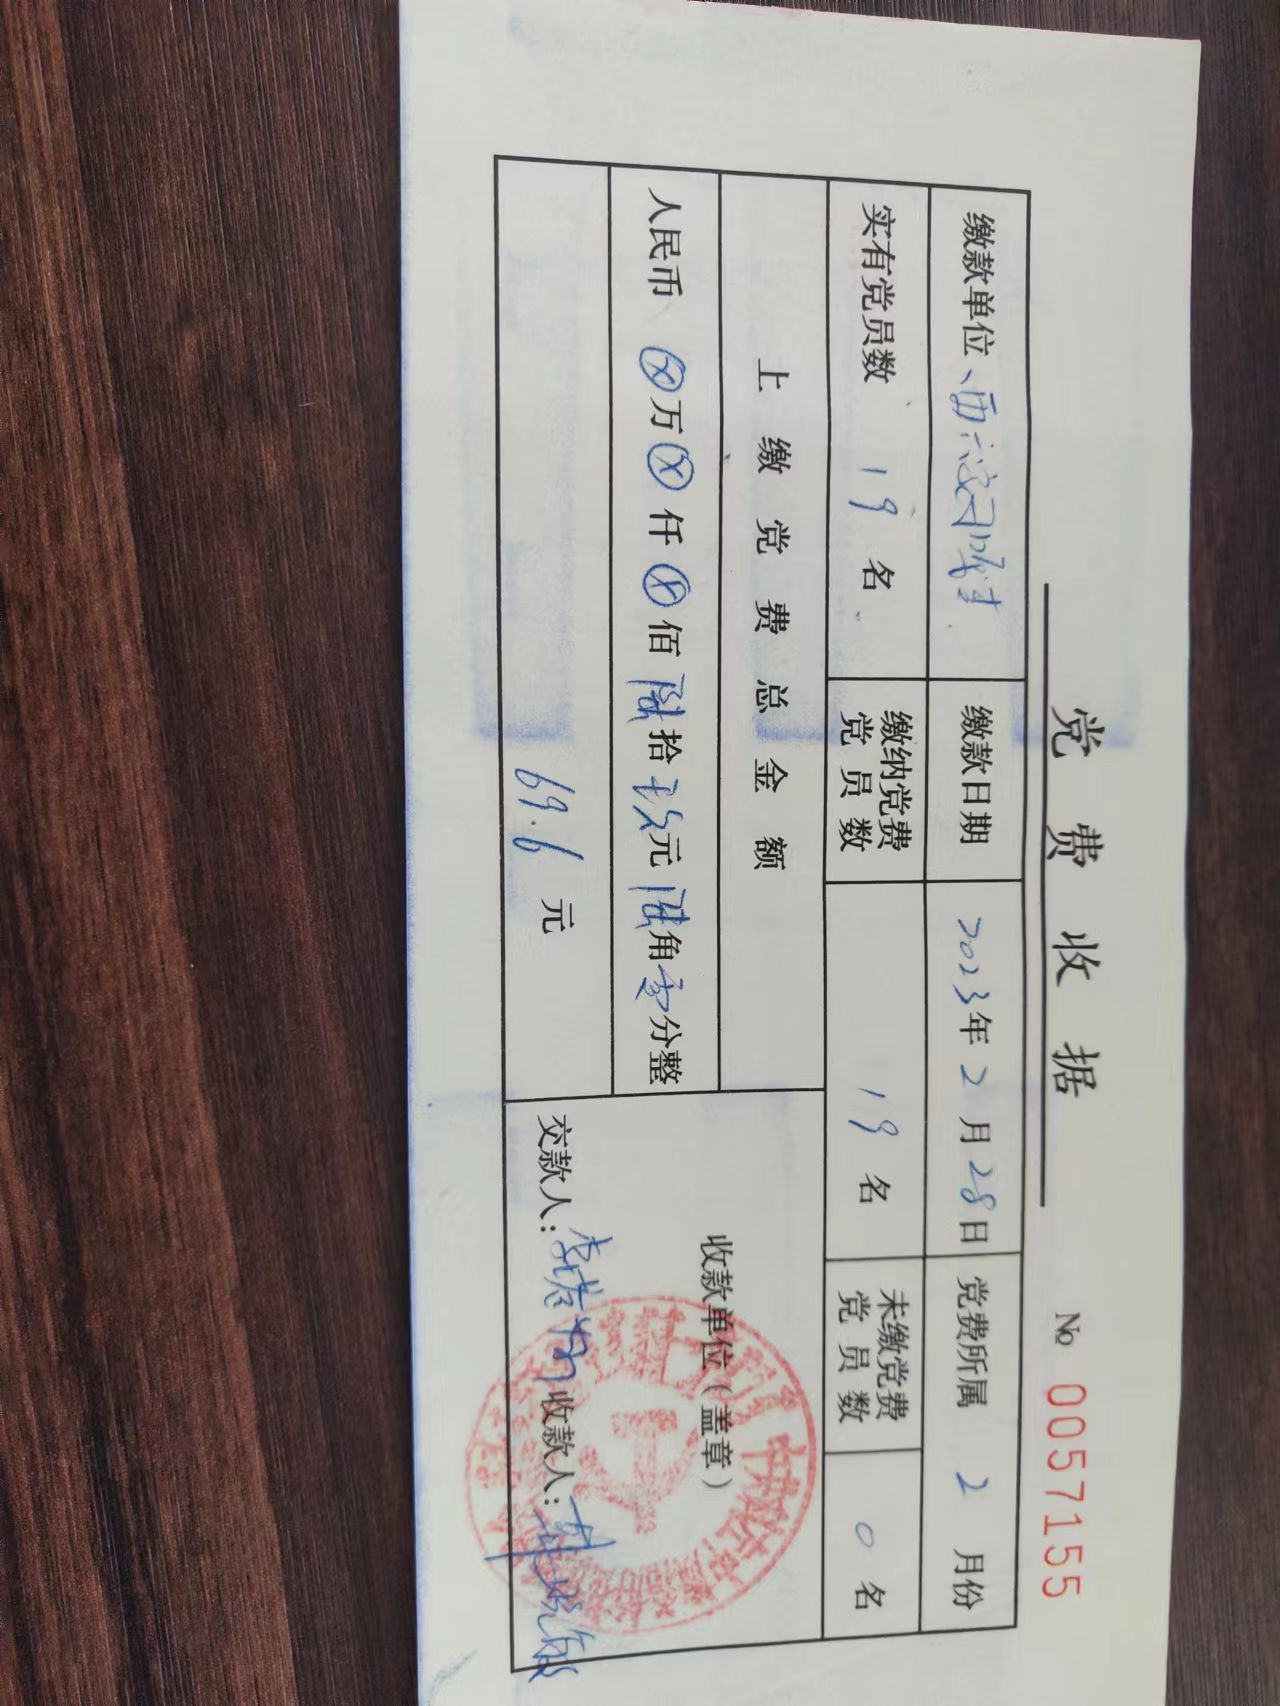 党费收据
No 0057155
缴款单位 缴款日期 2023年2月28日 党费所属 2 月份
实有党员数 19 名 缴纳党费党员数 19 名 未缴党费党员数 0 名
上缴党费总金额
人民币 ⊗万⊗仟⊗佰陆拾玖元陆角零分整
69.6 元
收款单位（盖章）
交款人: 收款人: